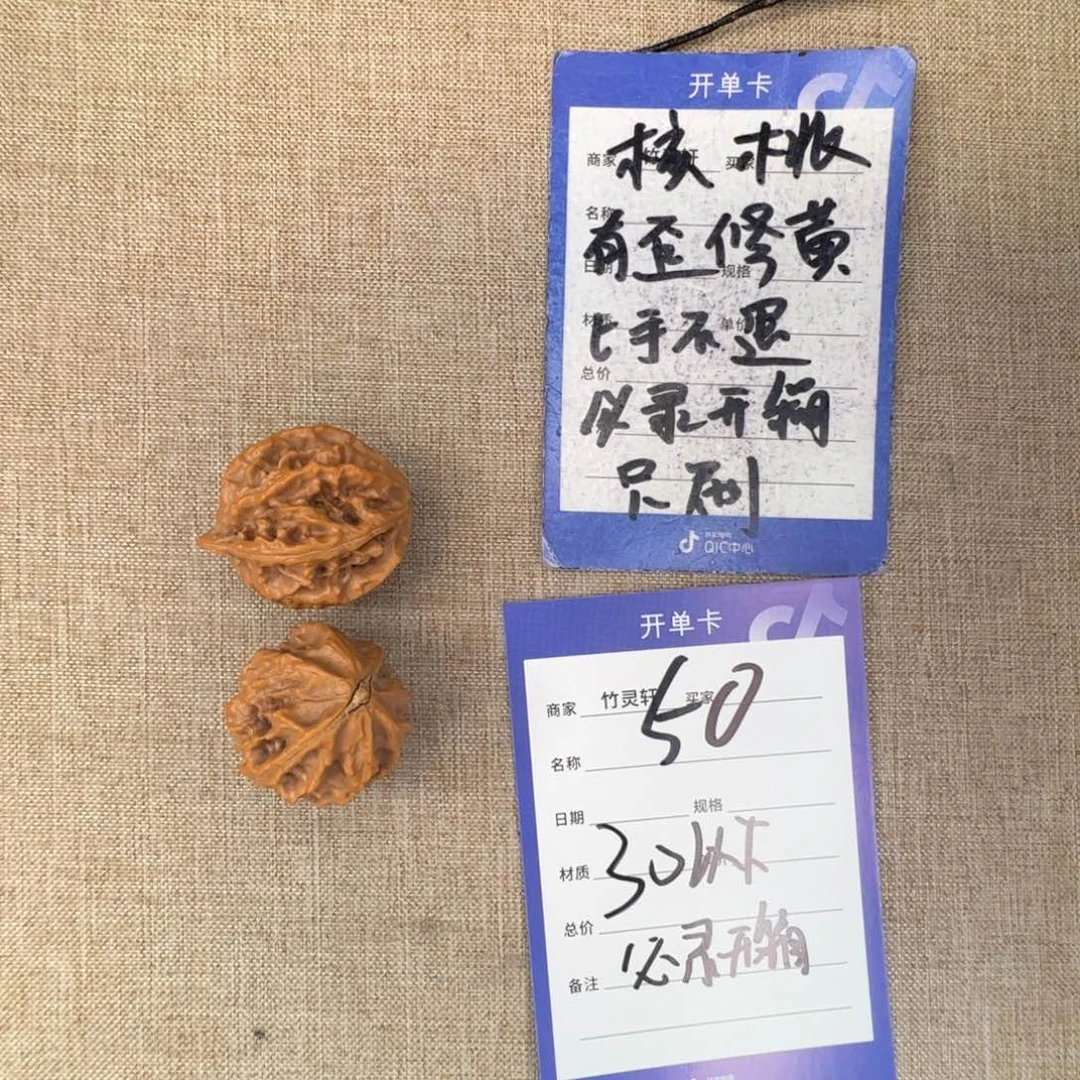 开单卡
商家 竹灵轩 买家
核桃
名称
有歪修黄
日期 规格
材质 单价
上手不退
总价
必录开箱
只刷
QIC中心
开单卡
商家 竹灵轩 买家
50
名称
日期 规格
材质 30以下
总价
必录开箱
备注